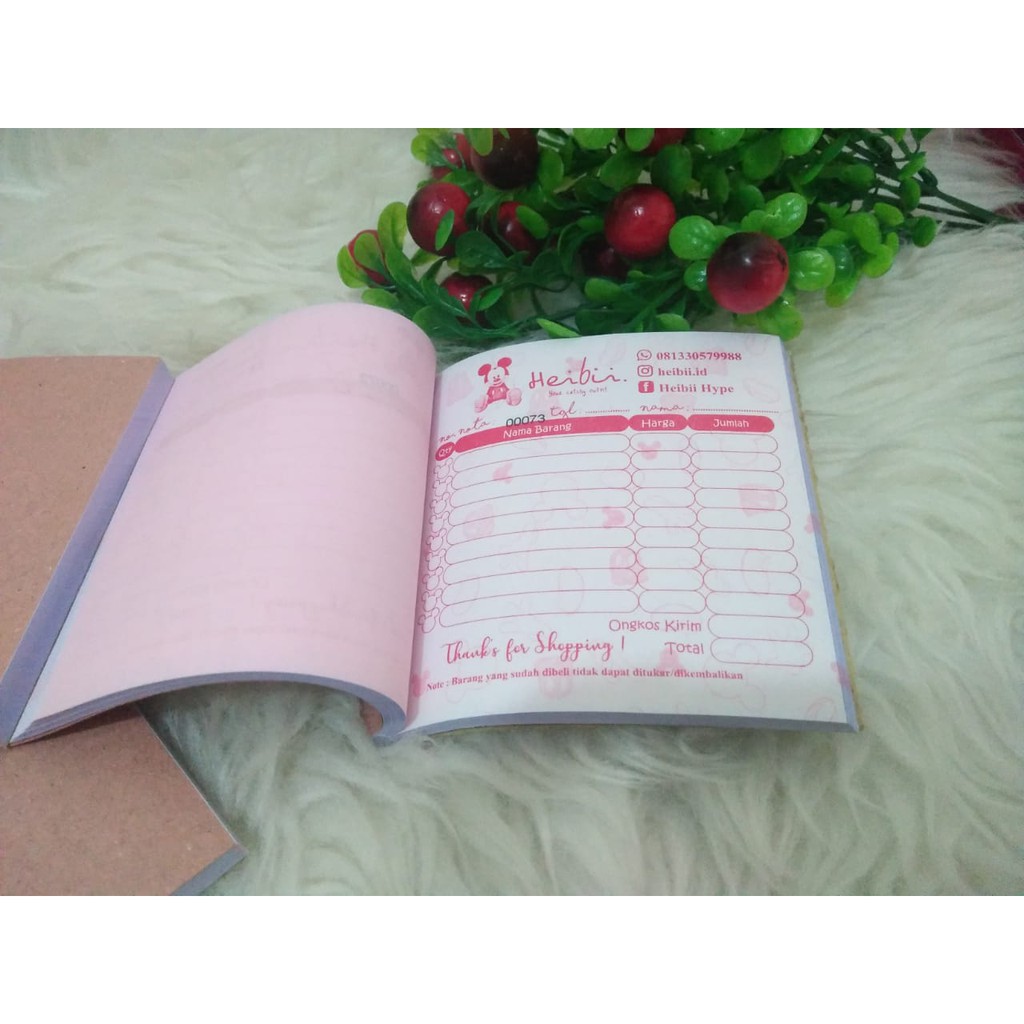 Heibii.
081330579988
heibii.id
Heibii Hype
no. nota 00073 tgl : .............. nama : ..............
Qty Nama Barang Harga Jumlah
Ongkos Kirim
Thank's for Shopping ! Total
Note : Barang yang sudah dibeli tidak dapat ditukar/dikembalikan